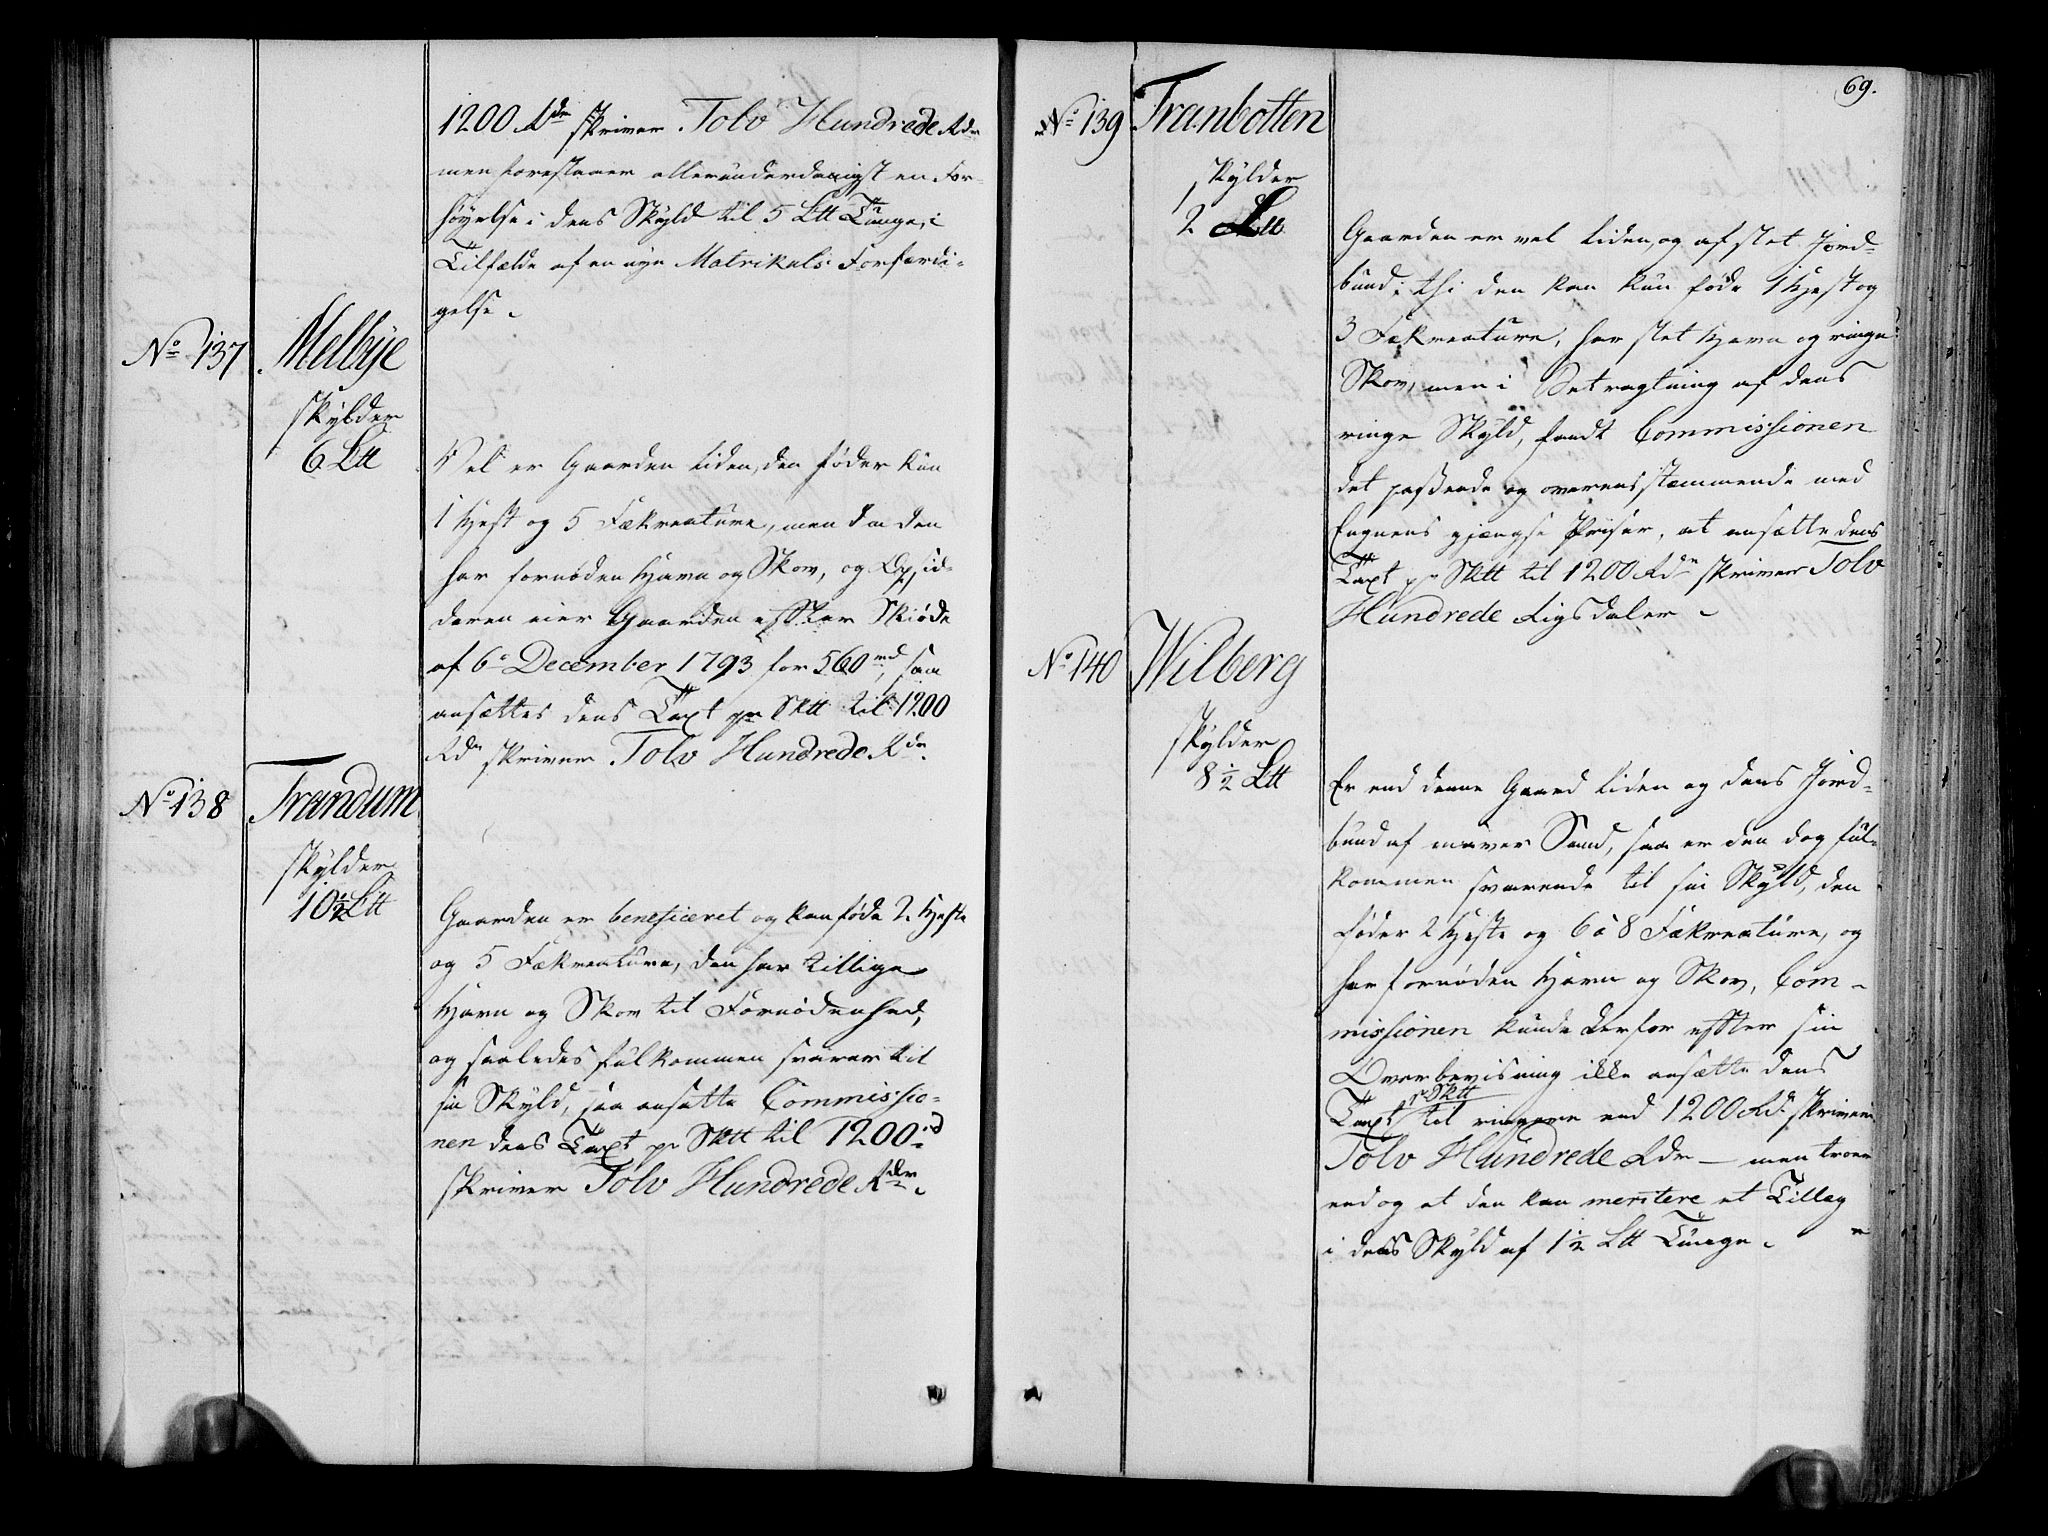 1200 Rdr skriver Tolv Hundrede Rdr
men forestaaer allerunderdanigst en For-
høyelse i dens Skyld til 5 Ltt Tunge, i
Tilfælde af en nye Matrikuls Forfærdi-
gelse.
No 137
Melbye
skylder
6 Ltt
Vel er Gaarden liden, den føder kun
1 Hest og 5 Fækreature, men da den
har fornøden Havn og Skov, og Opsid-
deren eier Gaarden efter Skiøde
af 6e December 1793 for 560 rd, saa
ansættes dens Taxt pr Sktt til 1200
Rdr skriver Tolv Hundrede Rdr.
No 138
Trandum
skylder
10½ Ltt
Gaarden er beneficeret og kan føde 2 Heste
og 5 Fækreature, den har tillige
Havn og Skov til Fornødenhed,
og saaledes fulkommen svarer til
sin Skyld, saa ansatte Commissio-
nen dens Taxt pr Sktt til 1200 rd
skriver Tolv Hundrede Rdr.
69.
No 139
Tranbotten
skylder
2 Ltt
Gaarden er vel liden og af slet Jord-
bund; thi den kan kun føde 1 Hest og
3 Fækreature, har slet Havn og ringe
Skov, men i Betragtning af dens
ringe Skyld, fandt Commissionen
det passende og overensstemmende med
Egnens gjængse Priser, at ansætte dens
Taxt pr Sktt til 1200 Rdr skriver Tolv
Hundrede Rigsdaler.
No 140
Wilberg
skylder
8½ Ltt
Er end denne Gaard liden og dens Jord-
bund af maver Sand, saa er den dog ful-
kommen svarende til sin Skyld, den
føder 2 Heste og 6 à 8 Fækreature, og
har fornøden Havn og Skov, Com-
missionen kunde derfor efter sin
Overbeviisning ikke ansætte dens
Taxt pr Sktt til ringere end 1200 Rdr skriver
Tolv Hundrede Rdr — men troer
endog at den kan meritere et Tillæg
i dens Skyld af 1½ Ltt Tunge.